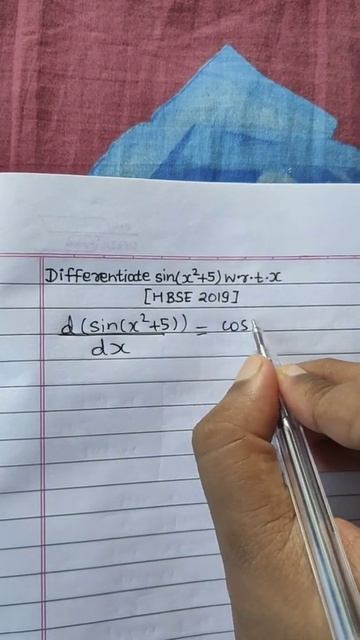 Differentiate sin(x²+5) w.r.t.x
[HBSE 2019]
d(sin(x²+5)) = cos
dx